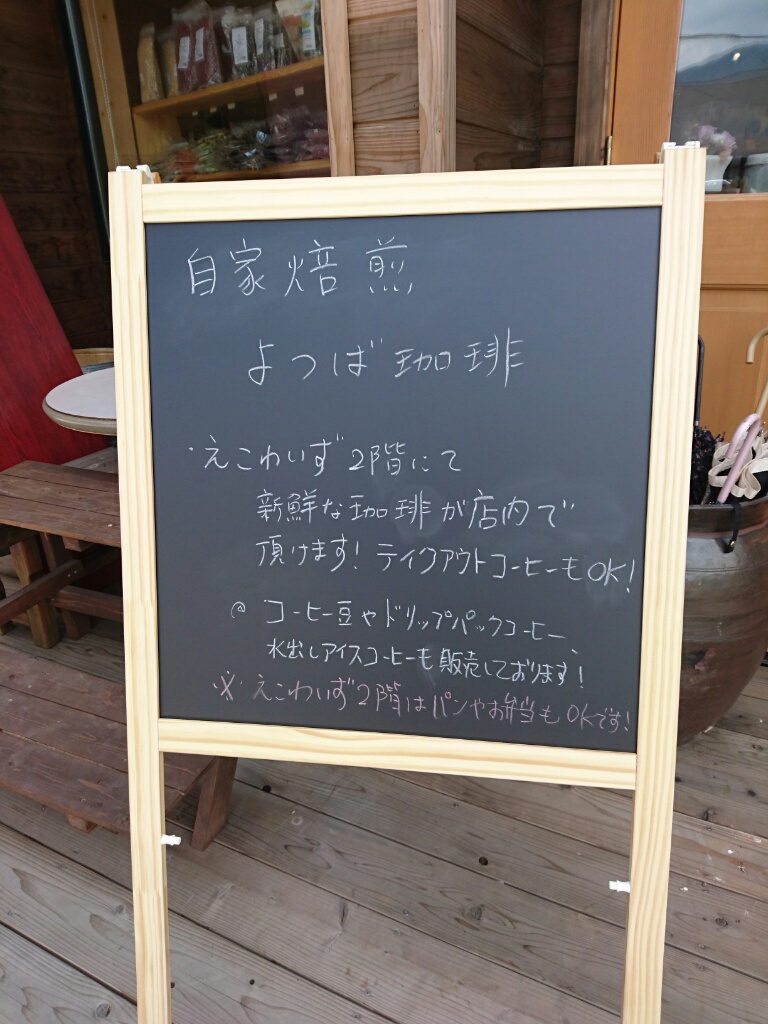 自家焙煎
よつば珈琲
・えこわいず2階にて
新鮮な珈琲が店内で
頂けます！テイクアウトコーヒーもOK！
@ コーヒー豆やドリップパックコーヒー、
水出しアイスコーヒーも販売しております！
※えこわいず2階はパンやお弁当もOKです！